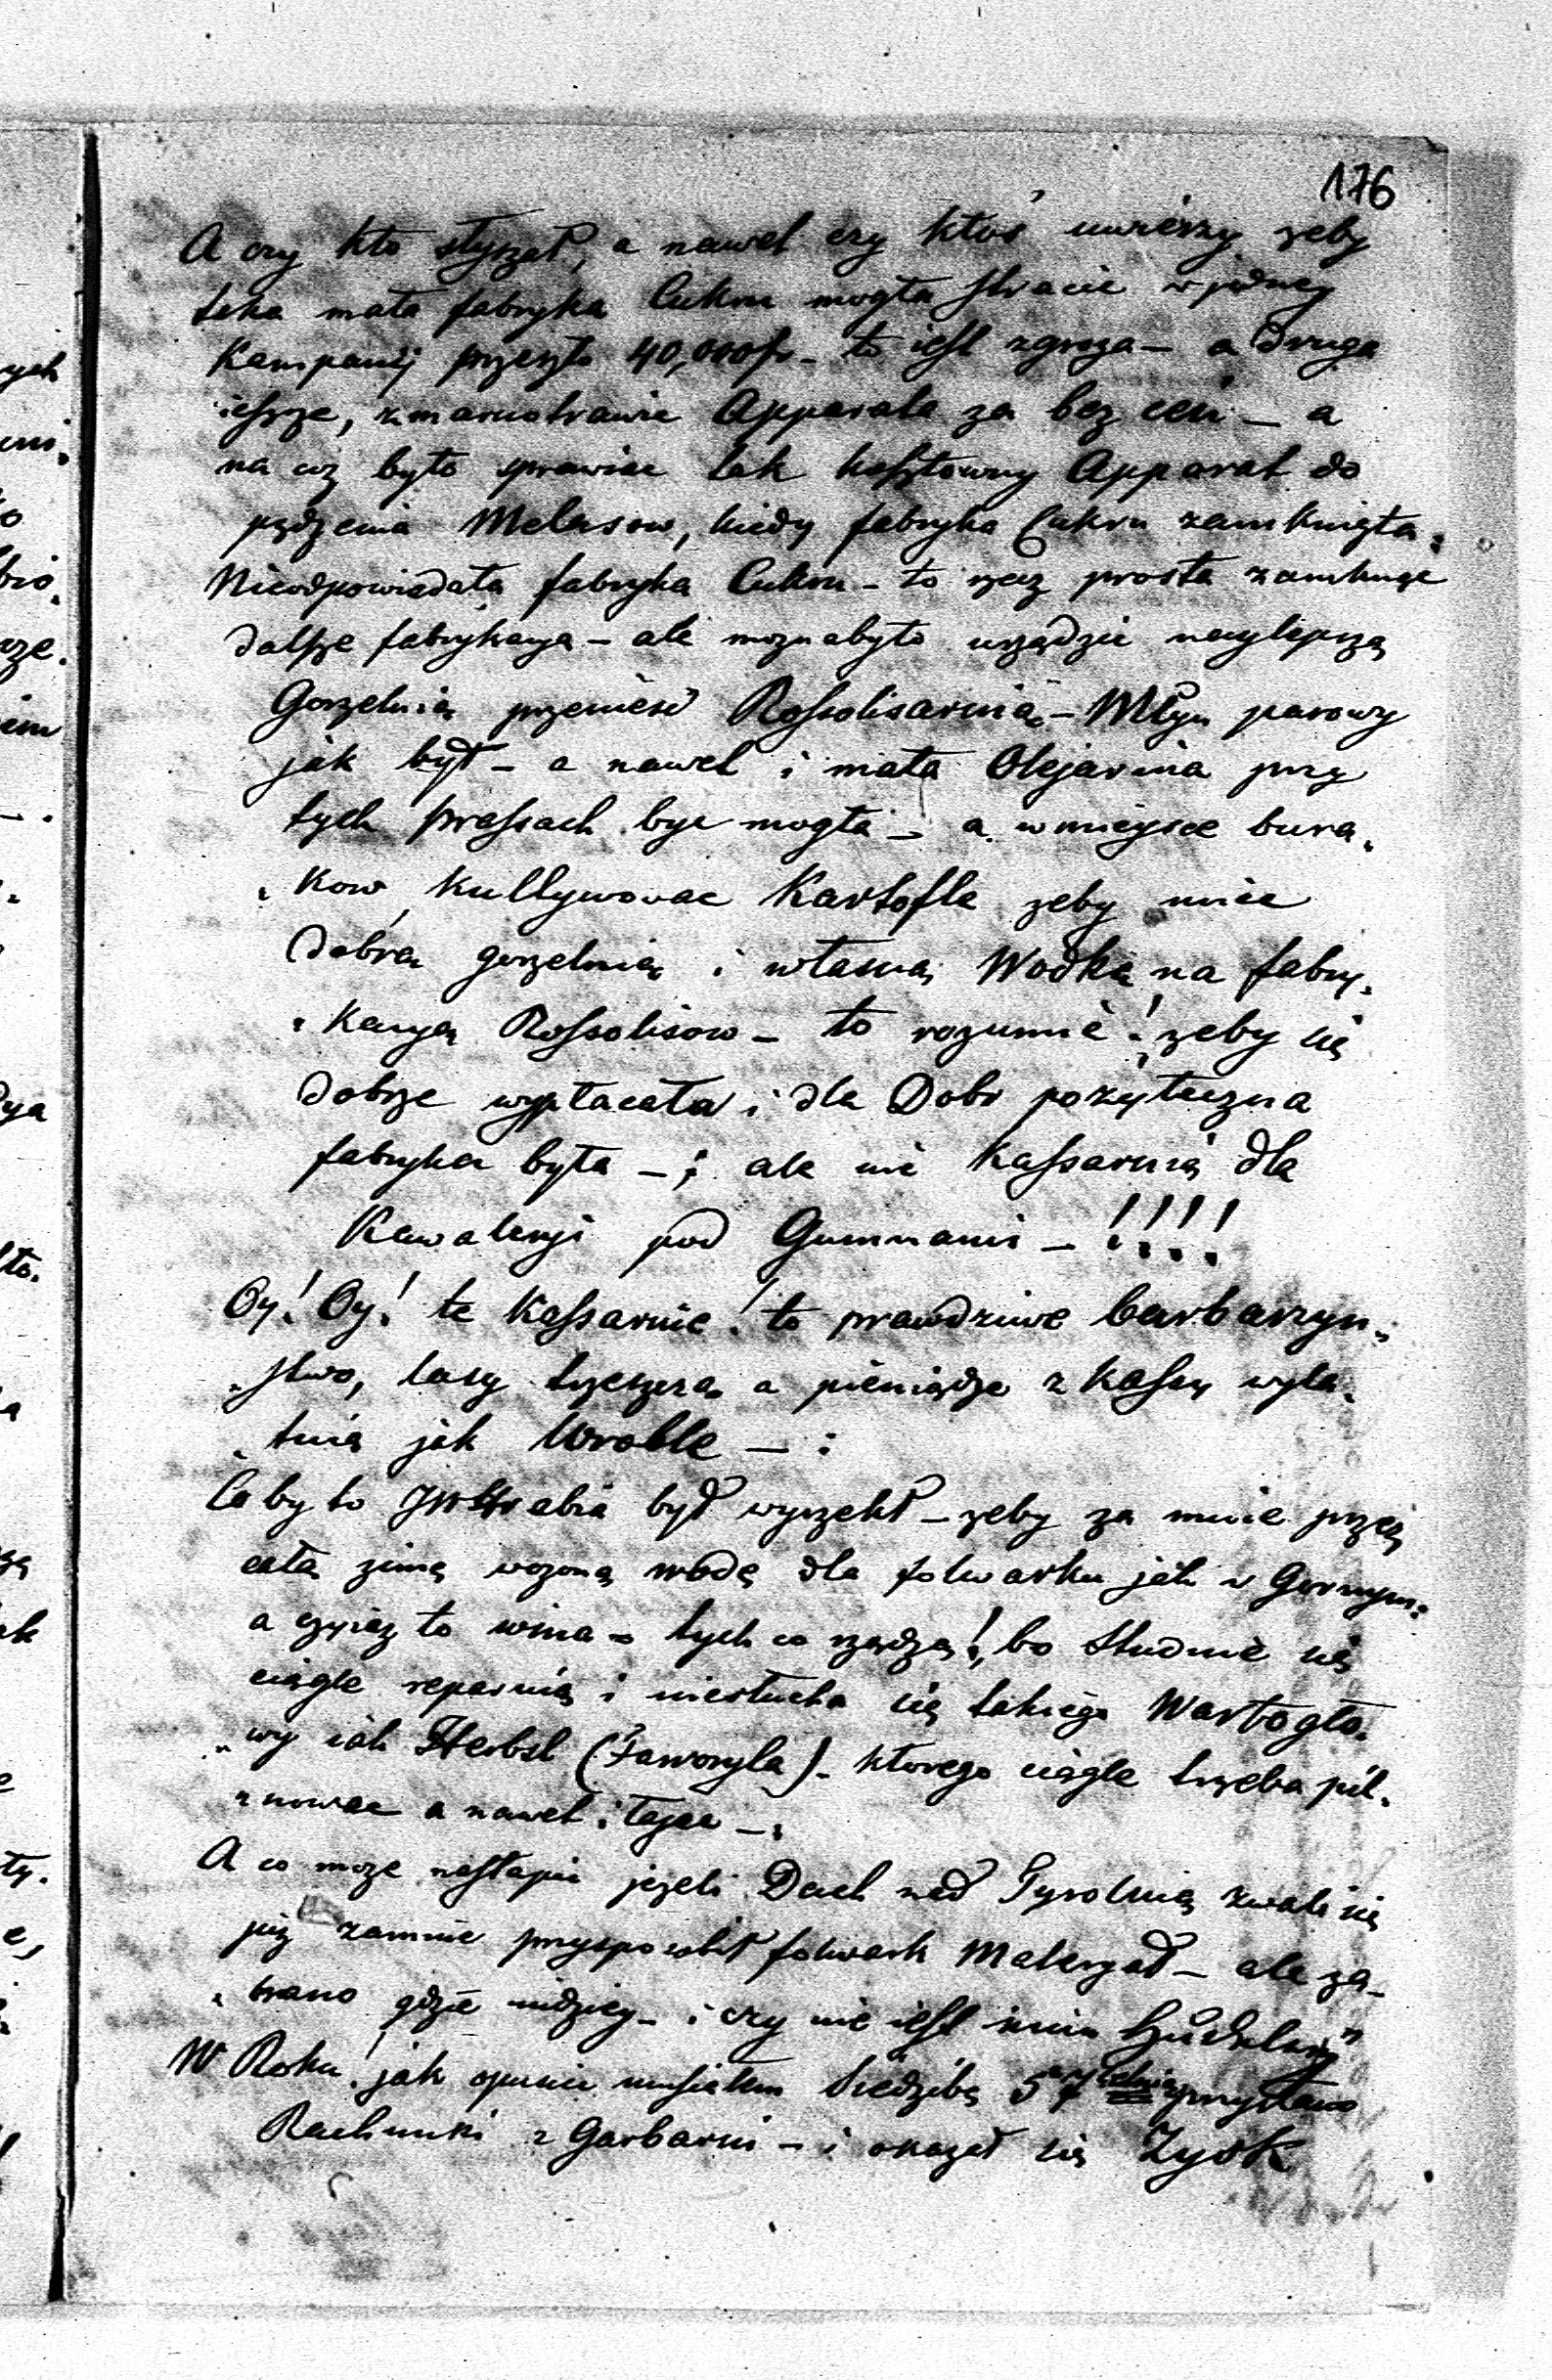 176
A czy kto słyszał, a nawet czy ktoś uwierzy zeby
taka mała fabryka Cukru mogła stracic w jedney
Kampanij przeszło 40,000 fr - to iest zgroza - a druga
ieszcze, zmarnotrawic Apparata za bez cen - a
na coz było sprawiac tak kosztowny Apparat do
pędzenia Melasow, kiedy fabryka Cukru zamknięta.
Nieodpowiedała fabryka Cukru - to rzecz prosta zamknąc
dalsze fabrykacyą - ale moznabyło urządzic naylepszą
Gorzelnią przeniesć Rossolisarnią - Młyn parowy
jak był - a nawet i mała Olejarnia przy
tych prassach byc mogła - a w mieysce bura„
„kow kultywowac Kartofle zeby miec
dobrą gorzelnią i własną Wodką na fabry„
„kacyą Rossolisow - to rozumiè! zeby się
dobrze wypłacała i dla Dobr pożyteczna
fabryka była - ; ale nie Kassarnią dla
Kawaleryi pod Gumnami - !!!!
Oy! Oy! te Kassarnie! to prawdziwe barbarzyn„
„stwo, lasy trzeszczą a pieniądze z Kassy wyla„
„tuią jak Wroble - :
Co by to JWHrabia był wyrzekł - zeby za mnie przez
całą zimą wozoną wodę dla folwarku jak w Gornym.
a czyiaz to wina - tych co rządzą!, bo Studnie się
ciągle reparuią i niesłucha się takiego Wartogło„
„wy iak Herbst (Faworyta) - ktorego ciągle trzeba pil„
„nowac a nawet i łajac - .
A co moze nastąpic jezeli Dach nad Tyrolnią zwali się
juz zamnie przysposobił folwark Materyał - ale za„
„brano gdzie indziey - i czy nie iest
W Roku! jak opuscic musiałem Siedzibę 57 letnią przysłano
Rachunki z Garbarni - i okazał się Zysk